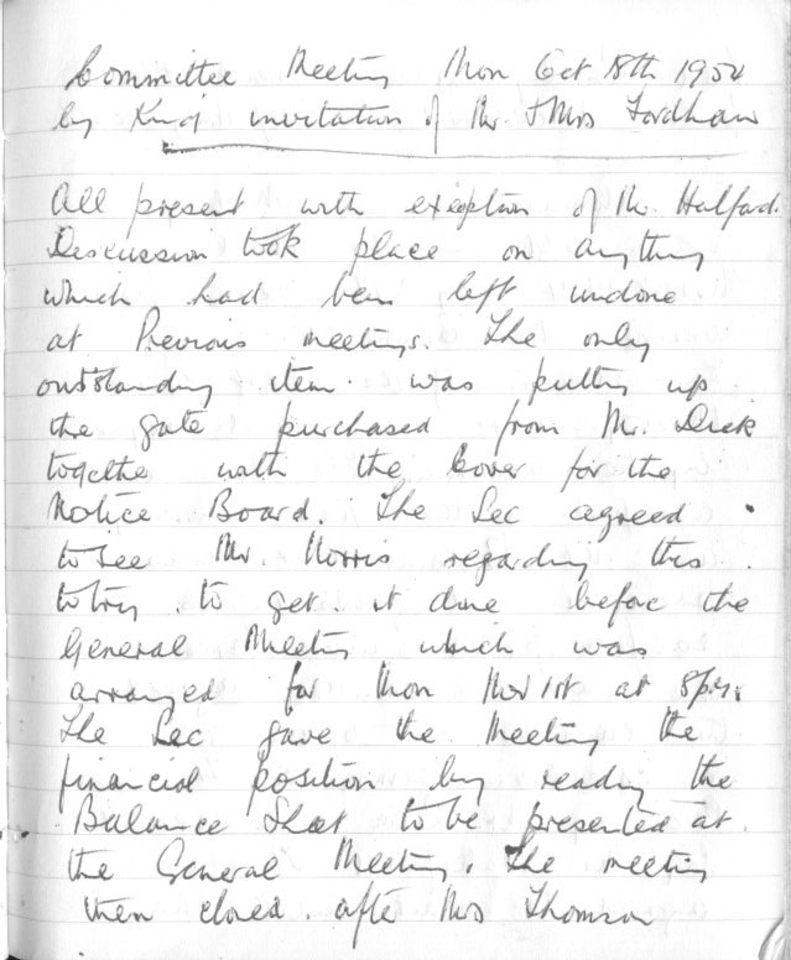 Committee Meeting Mon Oct 18th 1954
by Kind invitation of Mr. & Mrs Fordham
All present with exeception of Mr. Halford.
Discussion took place on anything
which had been left undone
at Previous meetings. The only
outstanding item. was putting up
the gate purchased from Mr. Dick
togethe with the Cover for the
Notice Board. The Sec agreed
to see Mr. Norris regarding this.
to try. to get. it done before the
General Meeting which was
arranged for Mon Nov 1st at 8p.m.
The Sec gave the Meeting the
financial position by reading the
Balance Sheet to be presented at
the General Meeting. The meeting
then closed. after Mrs Thomson